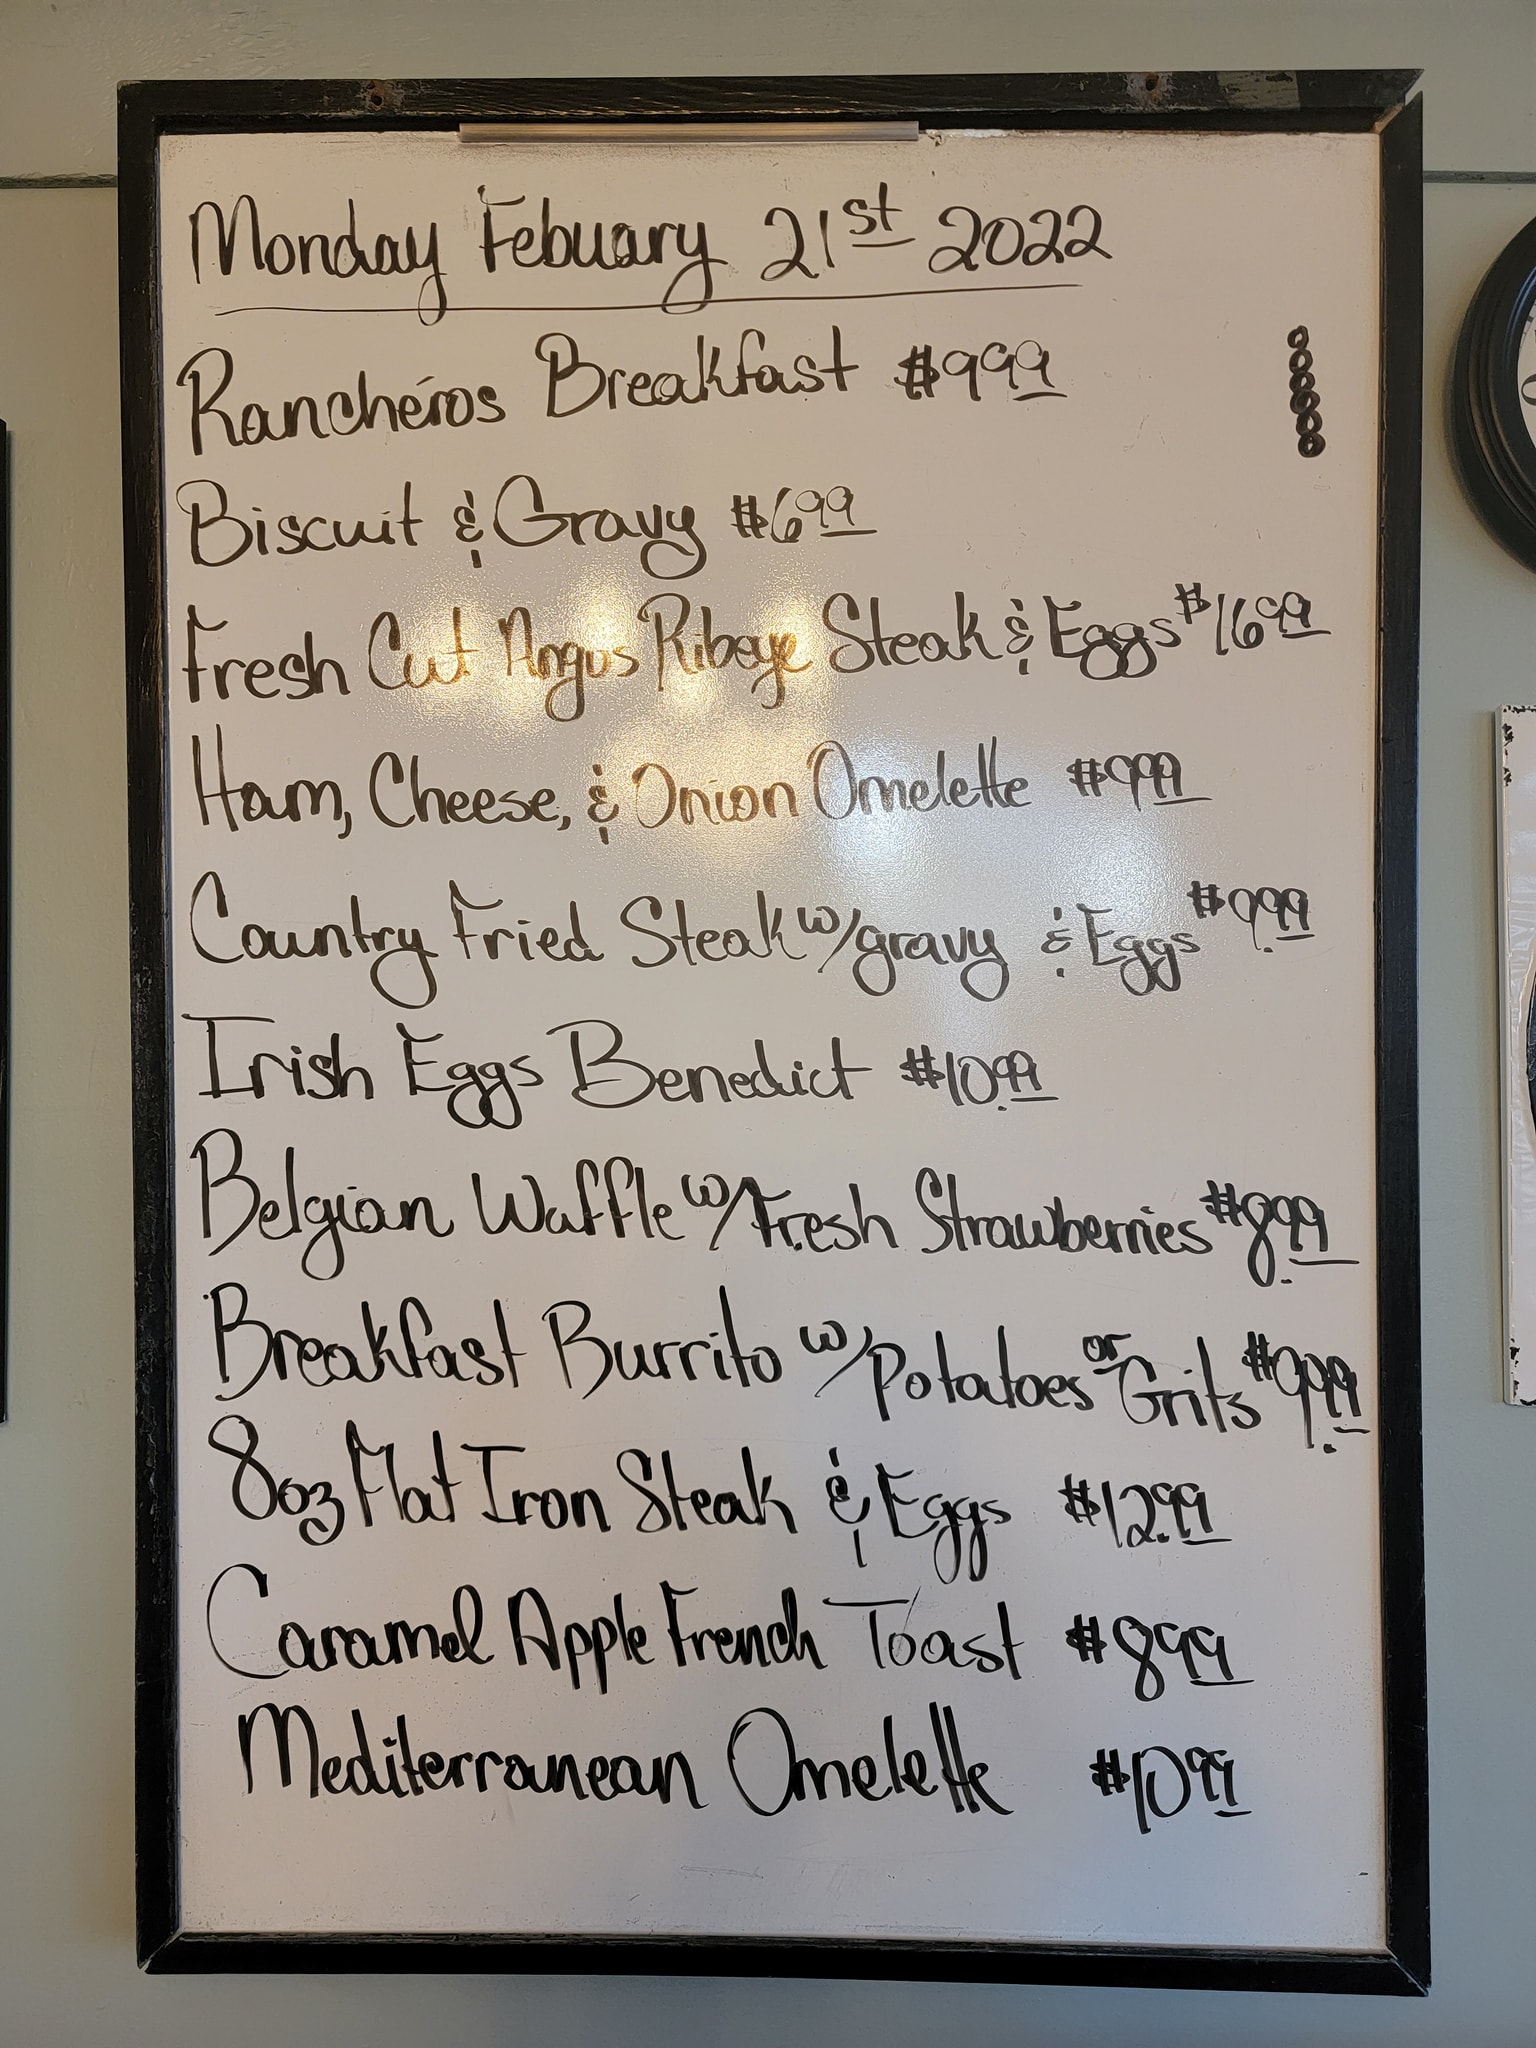 Monday Febuary 21st 2022
Ranchéros Breakfast $999
Biscuit & Gravy $699
Fresh Cut Angus Ribeye Steak & Eggs $1699
Ham, Cheese, & Onion Omelette $999
Country Fried Steak w/gravy & Eggs $9.99
Irish Eggs Benedict $10.99
Belgian Waffle w/Fresh Strawberries $8.99
Breakfast Burrito w/Potatoes or Grits $9.99
8oz Flat Iron Steak & Eggs $12.99
Caramel Apple French Toast $899
Mediterranean Omelette $1099